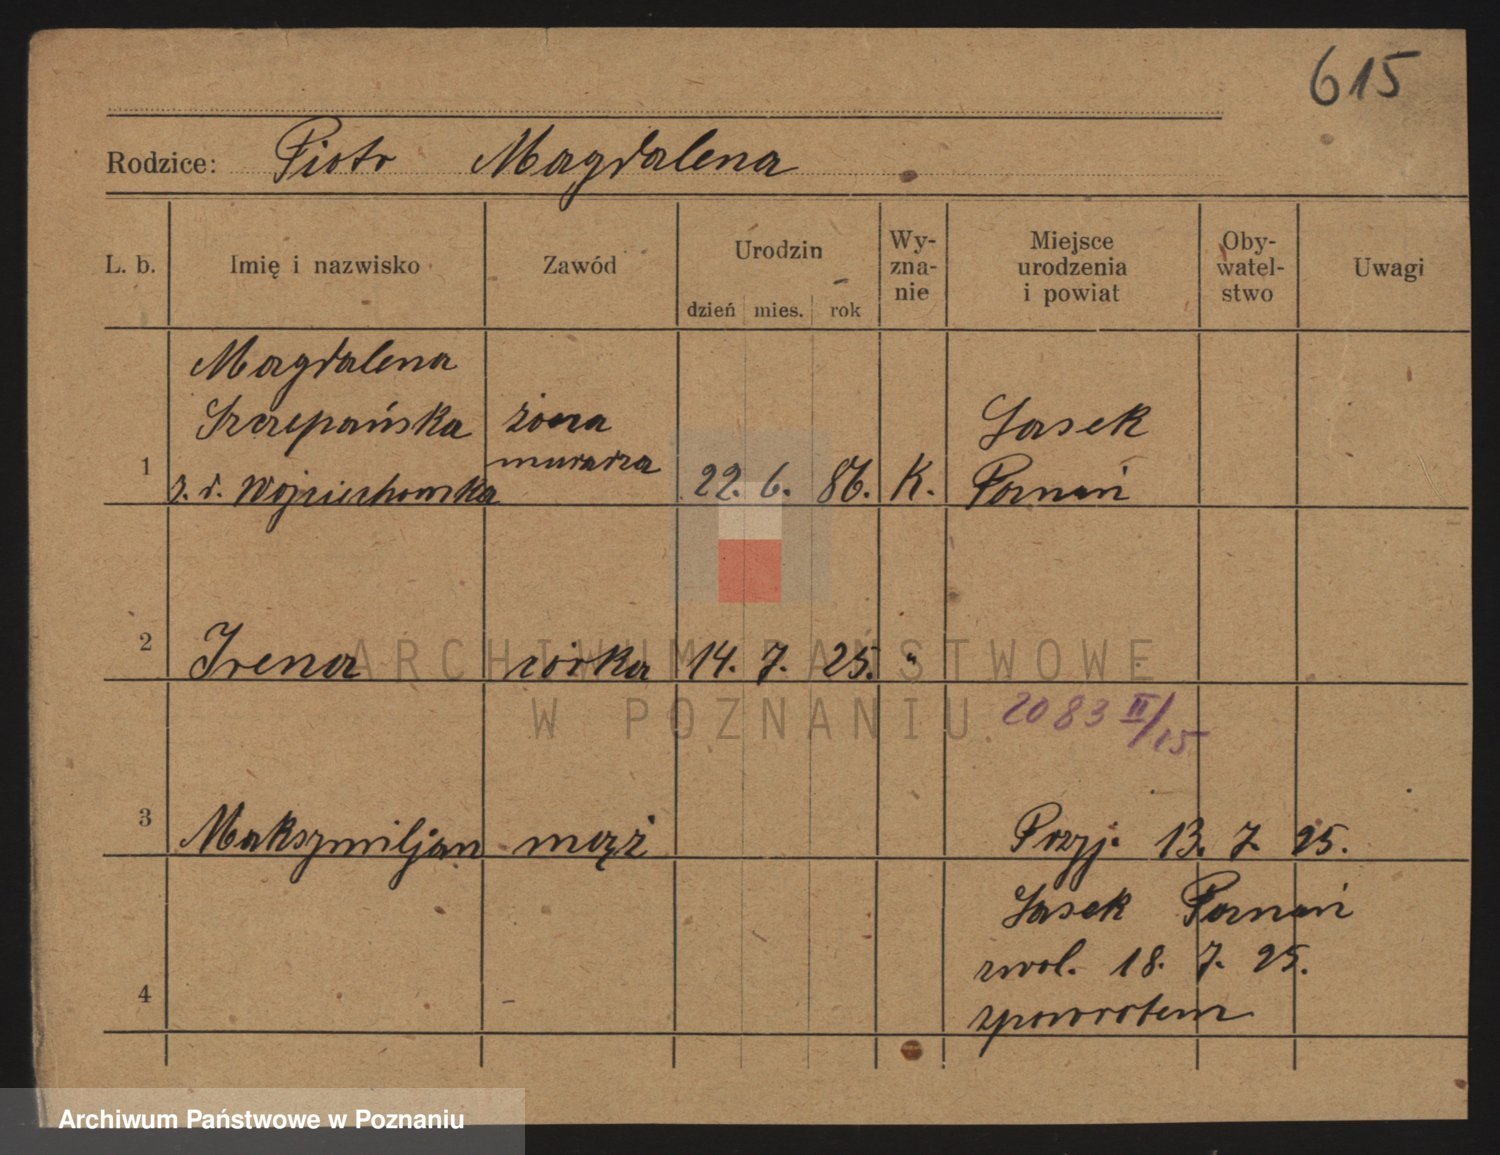 615
Rodzice: Piotr Magdalena
L. b. Imię i nazwisko Zawód Urodzin dzień mies. rok Wy-zna-nie Miejsce urodzenia i powiat Oby-watel-stwo Uwagi
Magdalena
Szczepańska żona Lasek
1 z. d. Wojciechowska murarza 22. 6. 86. K. Poznań
2 Irena córka 14. 7. 25. "
2083 II/15
3 Maksymiljan mąż Przyj. 13. 7. 25.
Lasek Poznań
zwol. 18. 7. 25.
4
zpowrotem
ARCHIWUM PAŃSTWOWE
W POZNANIU
Archiwum Państwowe w Poznaniu